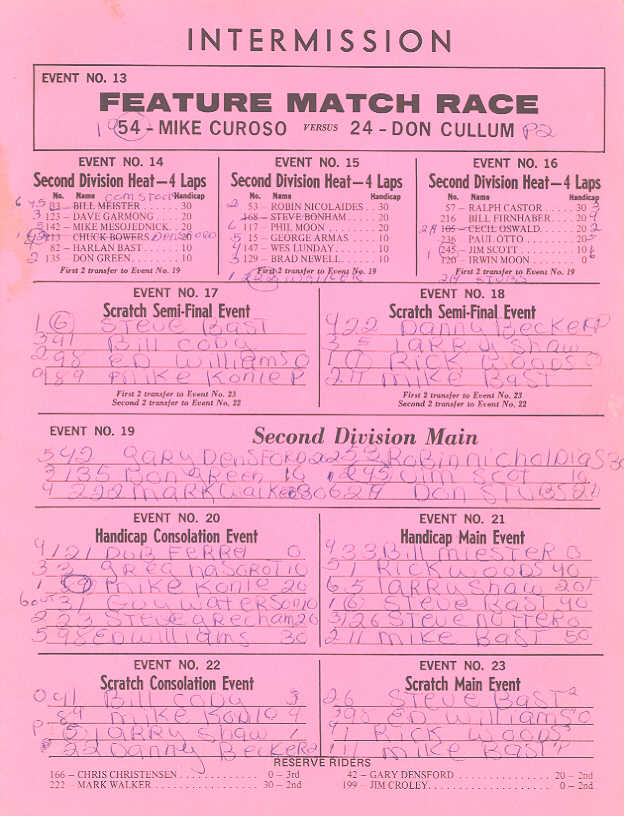 INTERMISSION
EVENT NO. 13
FEATURE MATCH RACE
54 - MIKE CUROSO VERSUS 24 - DON CULLUM P2
EVENT NO. 14
Second Division Heat—4 Laps
No. Name Handicap
BILL MEISTER 30
3 123 – DAVE GARMONG 20
5 142 – MIKE MESIOJEDNICK 20
213 – CHUCK BOWERS DENSFORD
82 – HARLAN BAST 10
2 135 – DON GREEN 10
First 2 transfer to Event No. 19
EVENT NO. 15
Second Division Heat—4 Laps
No. Name Handicap
2 53 – ROBIN NICOLAIDES 30
168 – STEVE BONHAM 20
6 117 – PHIL MOON 20
5 15 – GEORGE ARMAS 10
4 147 – WES LUNDAY 10
3 129 – BRAD NEWELL 10
First 2 transfer to Event No. 19
1 222 WALKER
EVENT NO. 16
Second Division Heat—4 Laps
No. Name Handicap
57 – RALPH CASTOR 30 3
216 BILL FIRNHABER 20 4
105 – CECIL OSWALD 20 2
236 PAUL OTTO 20 5
245 – JIM SCOTT 10
120 – IRWIN MOON 0 6
First 2 transfer to Event No. 19
24 STUBBS
EVENT NO. 17
Scratch Semi-Final Event
1 6 STEVE BAST
3 41 Bill CODY
2 98 ED Williams O
9 89 MIKE KONLE P
First 2 transfer to Event No. 23
Second 2 transfer to Event No. 22
EVENT NO. 18
Scratch Semi-Final Event
4 22 Danny Becker P
3 5 LARRY Shaw
1 1 Rick Woods O
2 11 MIKE BAST
First 2 transfer to Event No. 23
Second 2 transfer to Event No. 22
EVENT NO. 19
Second Division Main
5 42 GARY DENSFORD 20 2 53 ROBIN nicholDias 30
3 135 Don green 10 1 245 Jim Scot 10
4 222 MARK walker 30 6 24 DON STUBBS 20
EVENT NO. 20
Handicap Consolation Event
4 121 DUB FERREll 0
3 2 greg nasgroti 10
1 MIKE Konle 20
6 37 Guy WATERSON 10
2 23 STEVE gresham 20
5 98 ED williams 30
EVENT NO. 21
Handicap Main Event
4 33 Bill MIESTER 0
5 1 Rick WOODS 40
6 5 LARRY Shaw 20
1 6 STEVE BAST 40
3 126 STEVE NUTTER 0
2 11 MIKE BAST 50
EVENT NO. 22
Scratch Consolation Event
O 41 Bill CODY 3
P 89 MIKE Konle 4
5 LARRY Shaw 1
22 Danny Becker 2
EVENT NO. 23
Scratch Main Event
2 6 STEVE BAST 2
3 98 ED williams O
4 1 Rick WOODS 3
1 11 MIKE BAST P
RESERVE RIDERS
166 – CHRIS CHRISTENSEN 0 – 3rd
42 – GARY DENSFORD 20 – 2nd
222 – MARK WALKER 30 – 2nd
199 – JIM CROLEY 0 – 2nd